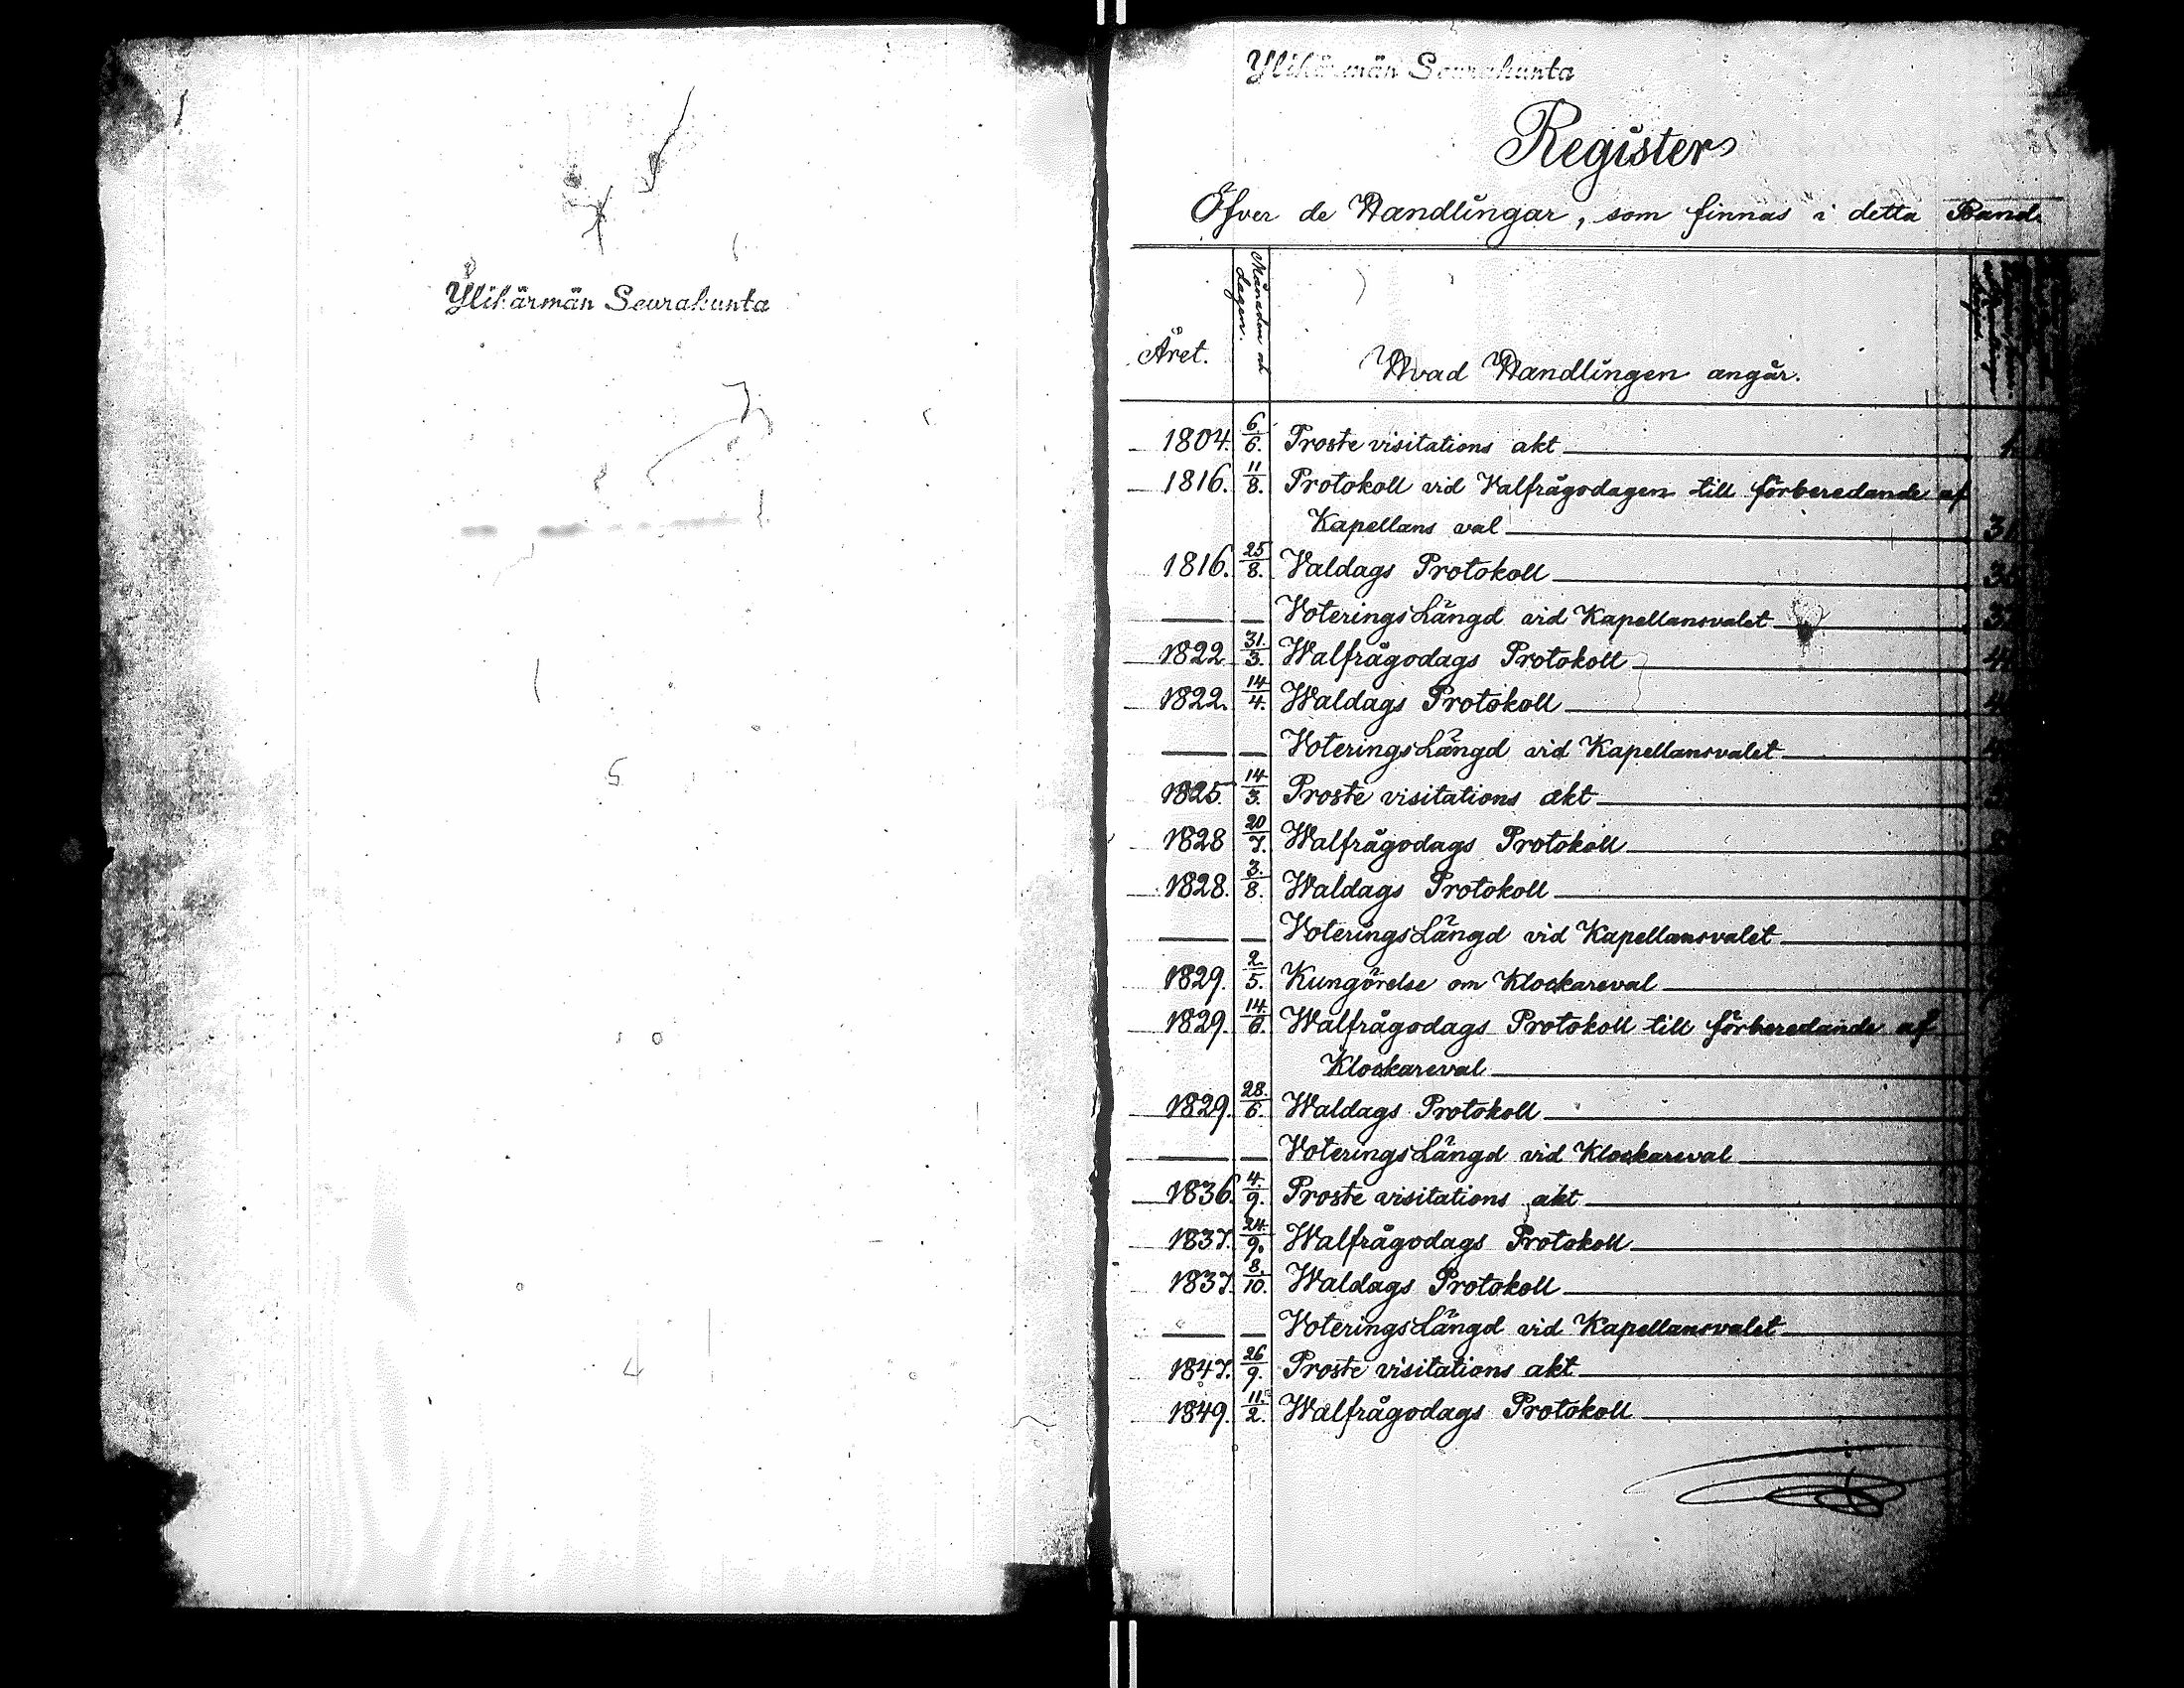 Ylikärmän Seurakunta
Ylikärmän Seurakunta
Register
Öfver de Handlingar, som finnas i detta Band.
Året.
Månaden och
dagen.
Hvad Handlingen angår.
1804. 6/6. Proste visitations akt 1.
1816. 11/8. Protokoll vid Valfrågodagen till förberedande af
Kapellans val 31
1816. 25/8. Valdags Protokoll
— — Voterings Längd vid Kapellansvalet
1822 31./3. Walfrågodags Protokoll
1822. 14/4. Waldags Protokoll
— — Voterings Längd vid Kapellansvalet
1825. 14/3. Proste visitations akt
1828 20/7. Walfrågodags Protokoll
1828. 3./8. Waldags Protokoll
— — Voterings Längd vid Kapellansvalet
1829. 2/5. Kungörelse om Klockareval
1829. 14./6. Walfrågodags Protokoll till förberedande af
Klockareval
1829. 28./6. Waldags Protokoll
— — Voterings Längd vid Klockareval
1836. 4./9. Proste visitations akt
1837. 24./9. Walfrågodags Protokoll
1837. 8./10. Waldags Protokoll
— — Voterings Längd vid Kapellansvalet
1847. 26/9. Proste visitations akt
1849. 11./2. Walfrågodags Protokoll